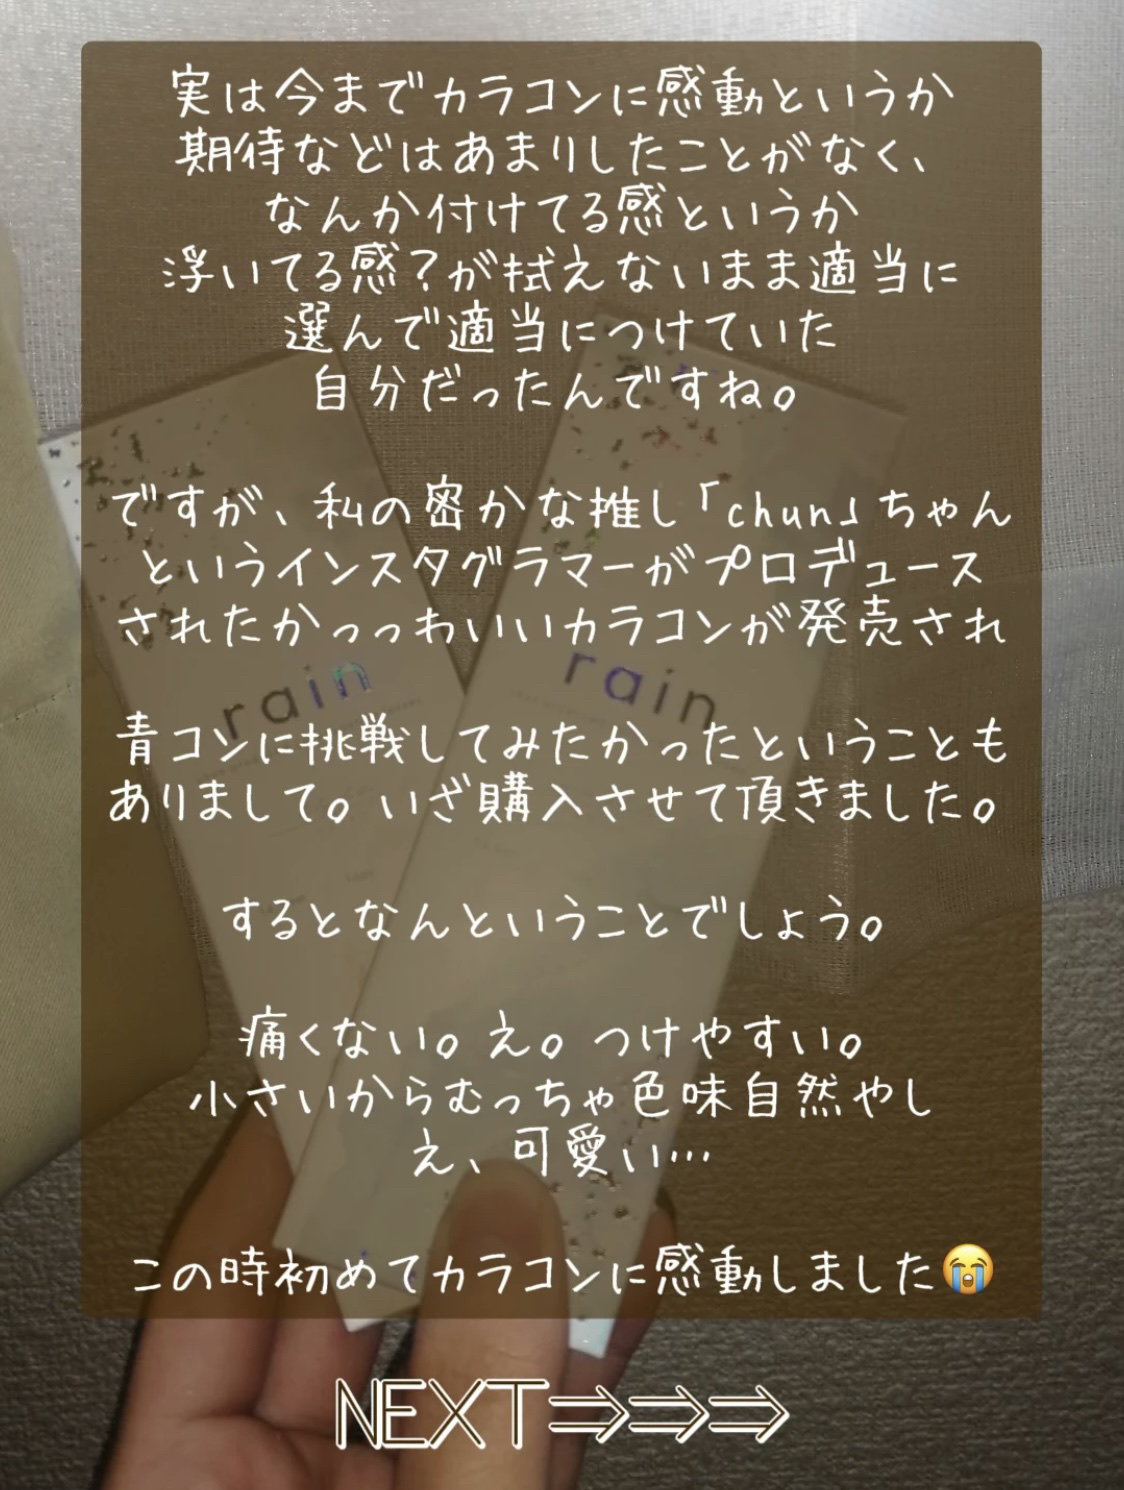 実は今までカラコンに感動というか
期待などはあまりしたことがなく、
なんか付けてる感というか
浮いてる感？が拭えないまま適当に
選んで適当につけていた
自分だったんですね。
ですが、私の密かな推し「chun」ちゃん
というインスタグラマーがプロデュース
されたかっっわいいカラコンが発売され
rain
rain
青コンに挑戦してみたかったということも
ありまして。いざ購入させて頂きました。
するとなんということでしょう。
痛くない。え。つけやすい。
小さいからむっちゃ色味自然やし
え、可愛い…
この時初めてカラコンに感動しました😭
NEXT⇒⇒⇒